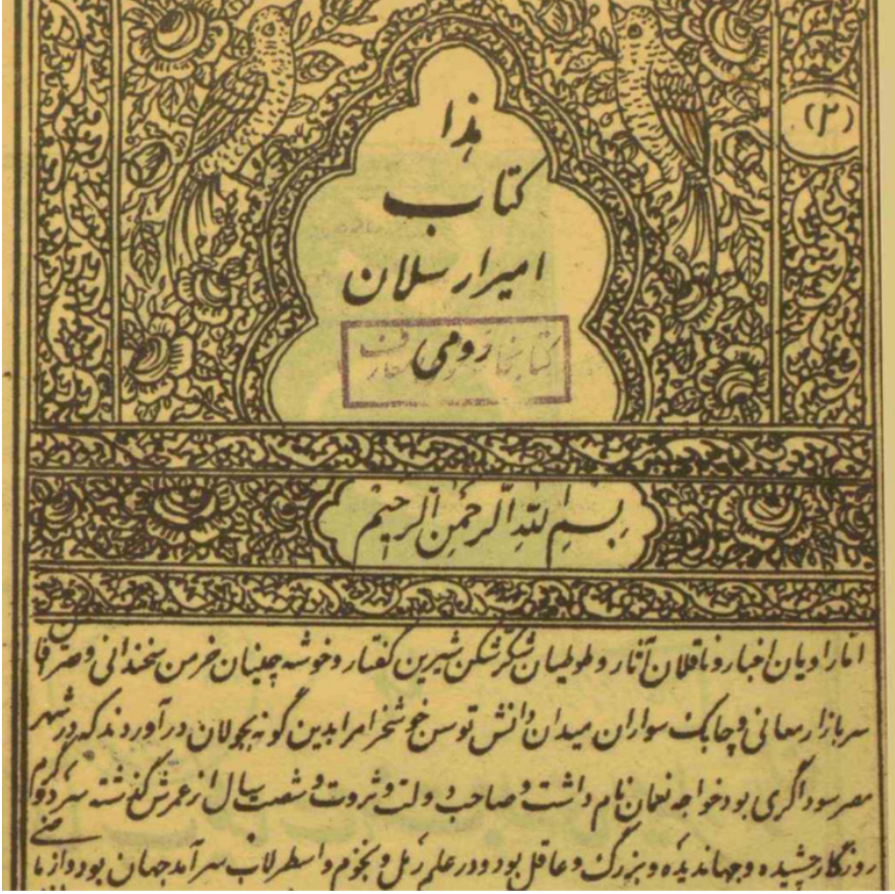 (۲)
هذا
کتاب
امیرارسلان
رومی
کتابخانه معارف
بسم الله الرحمن الرحیم
اما راویان اخبار و ناقلان آثار و طوطیان شکرشکن شیرین گفتار و خوشه چینان خرمن سخندانی و صرافان
سربازار معانی و چابک سواران میدان دانش توسن خوشخرام را بدین گونه بجولان در آوردند که در شهر
مصر سوداگری بود خواجه نعمان نام داشت و صاحب دولت و ثروت و شصت سال از عمرش گذشته سرد و گرم
روزگار چشیده و جهاندیده و بزرگ و عاقل بود و در علم رمل و نجوم و اسطرلاب سرآمد جهان بود و از ماضی